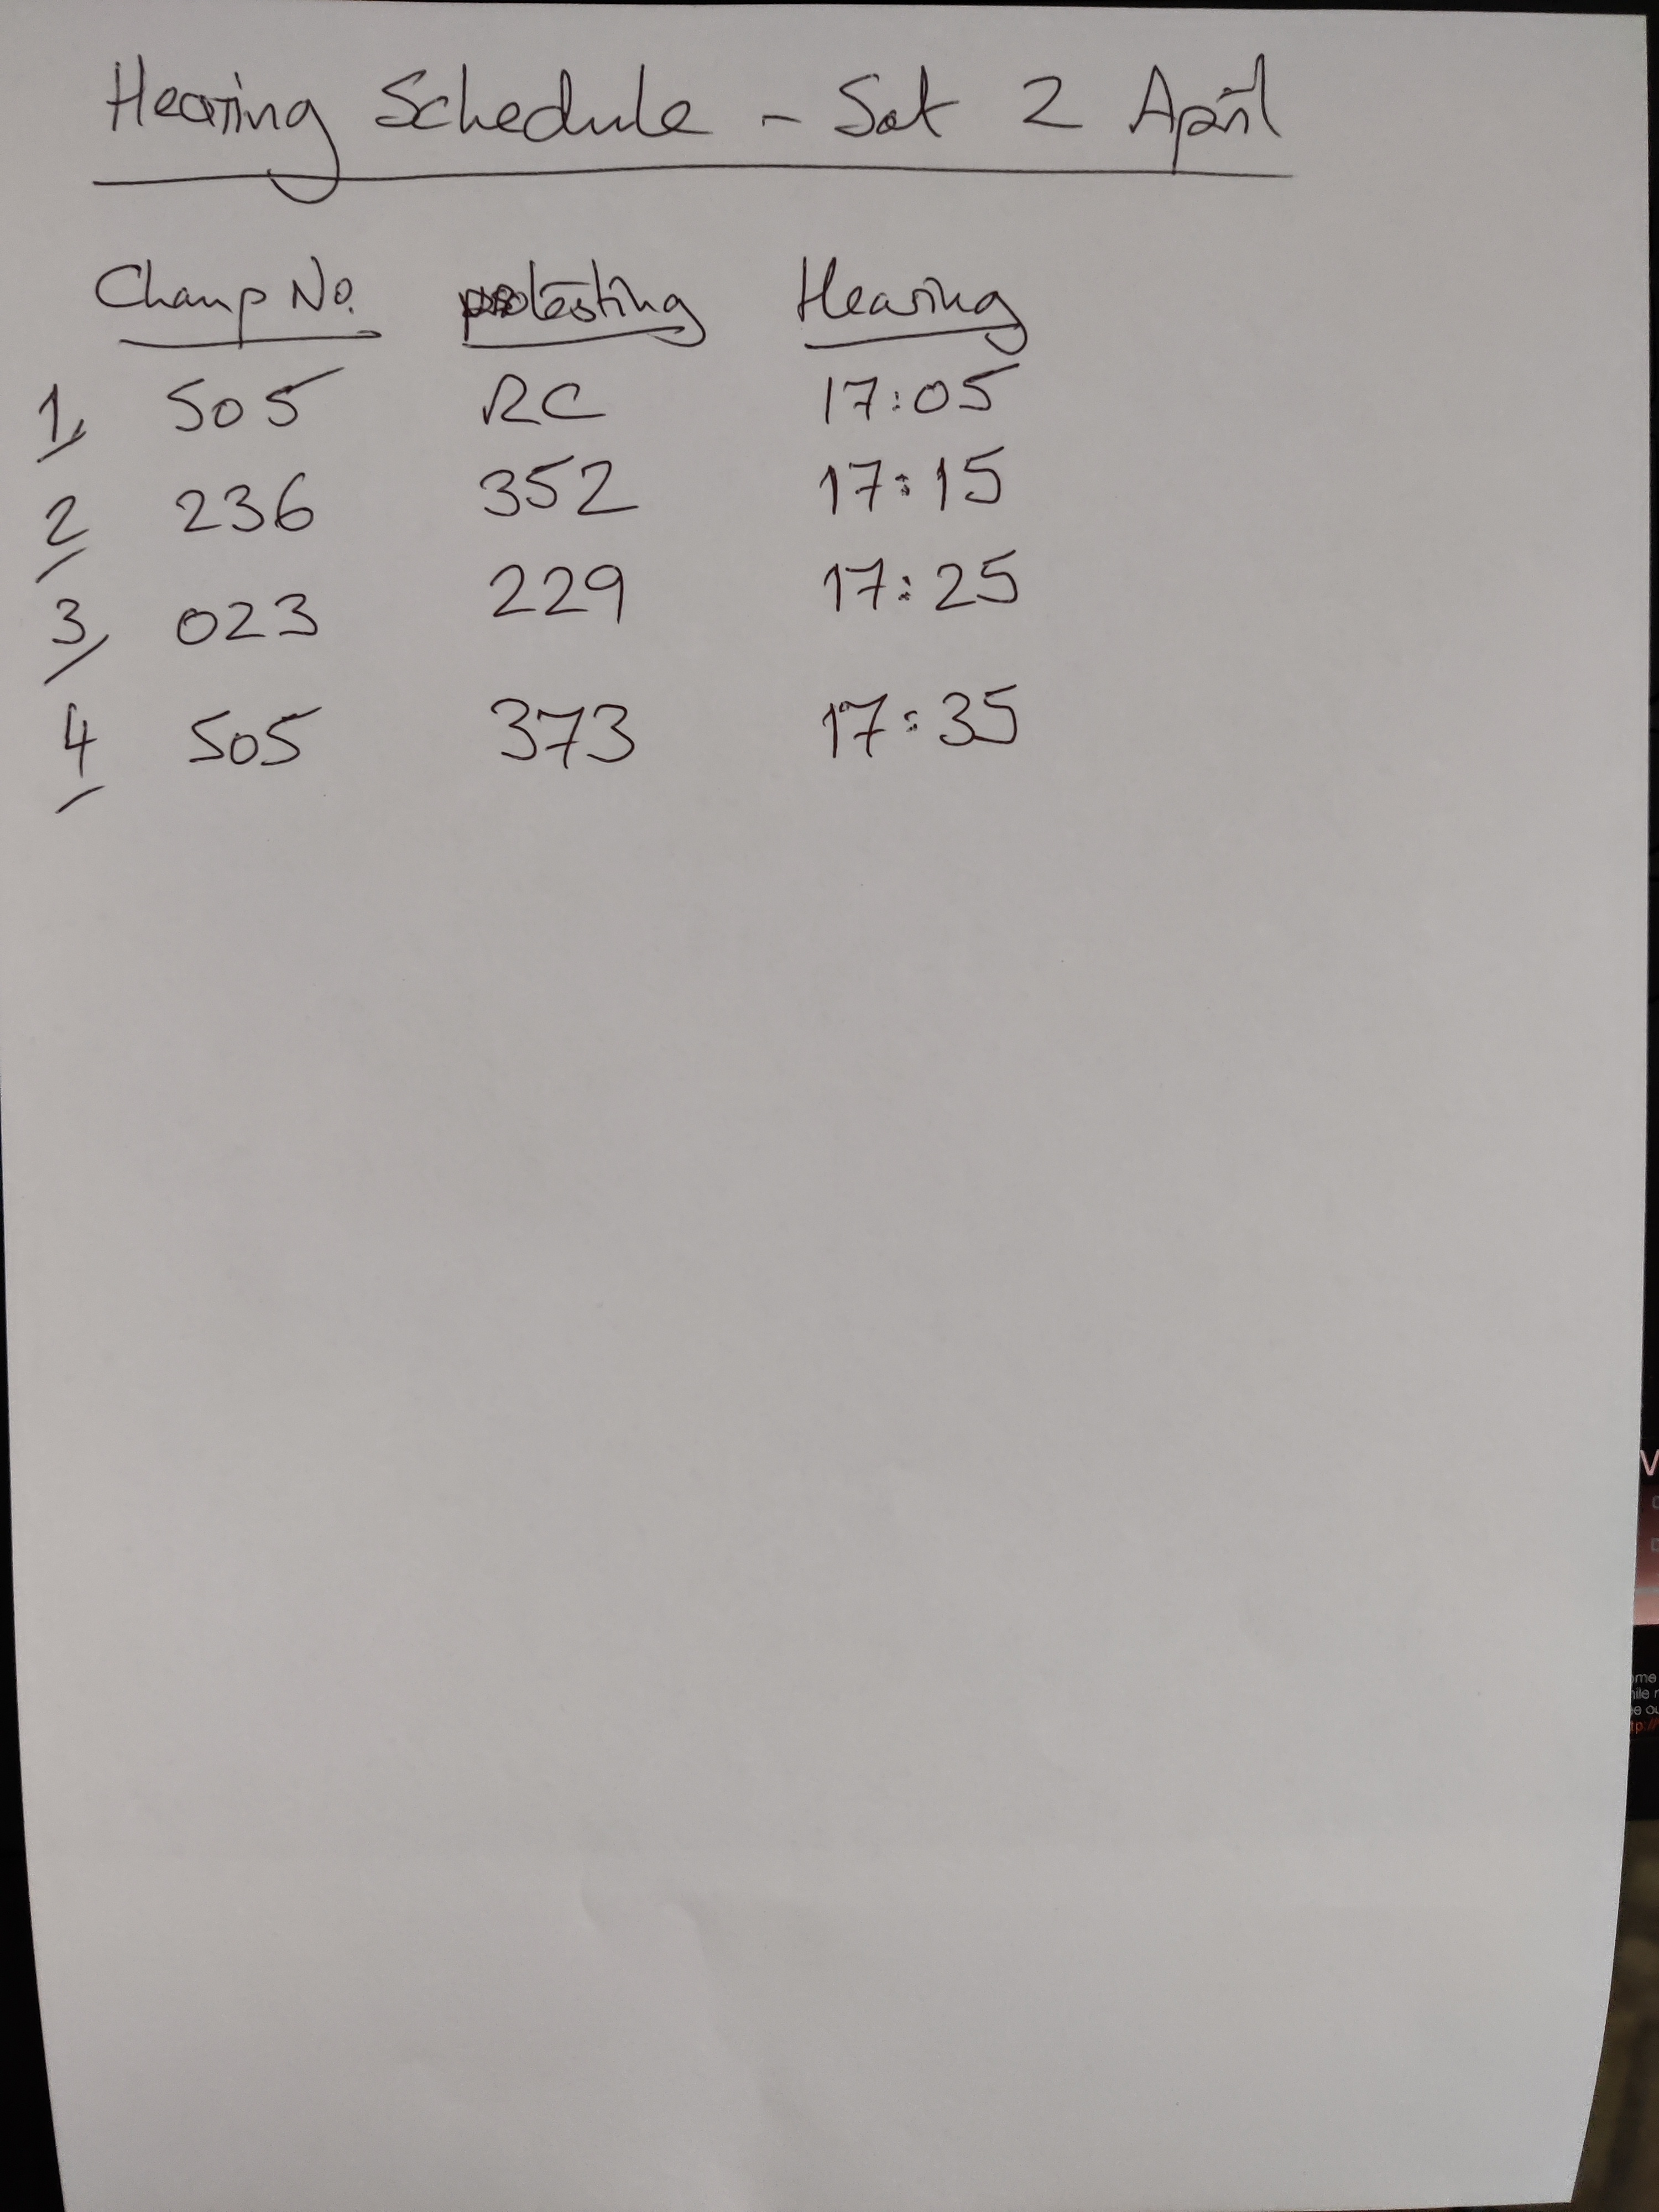 Hearing Schedule - Sat 2 April
Champ No. protesting Hearing
1, 505 RC 17:05
2 236 352 17:15
3, 023 229 17:25
4 505 373 17:35